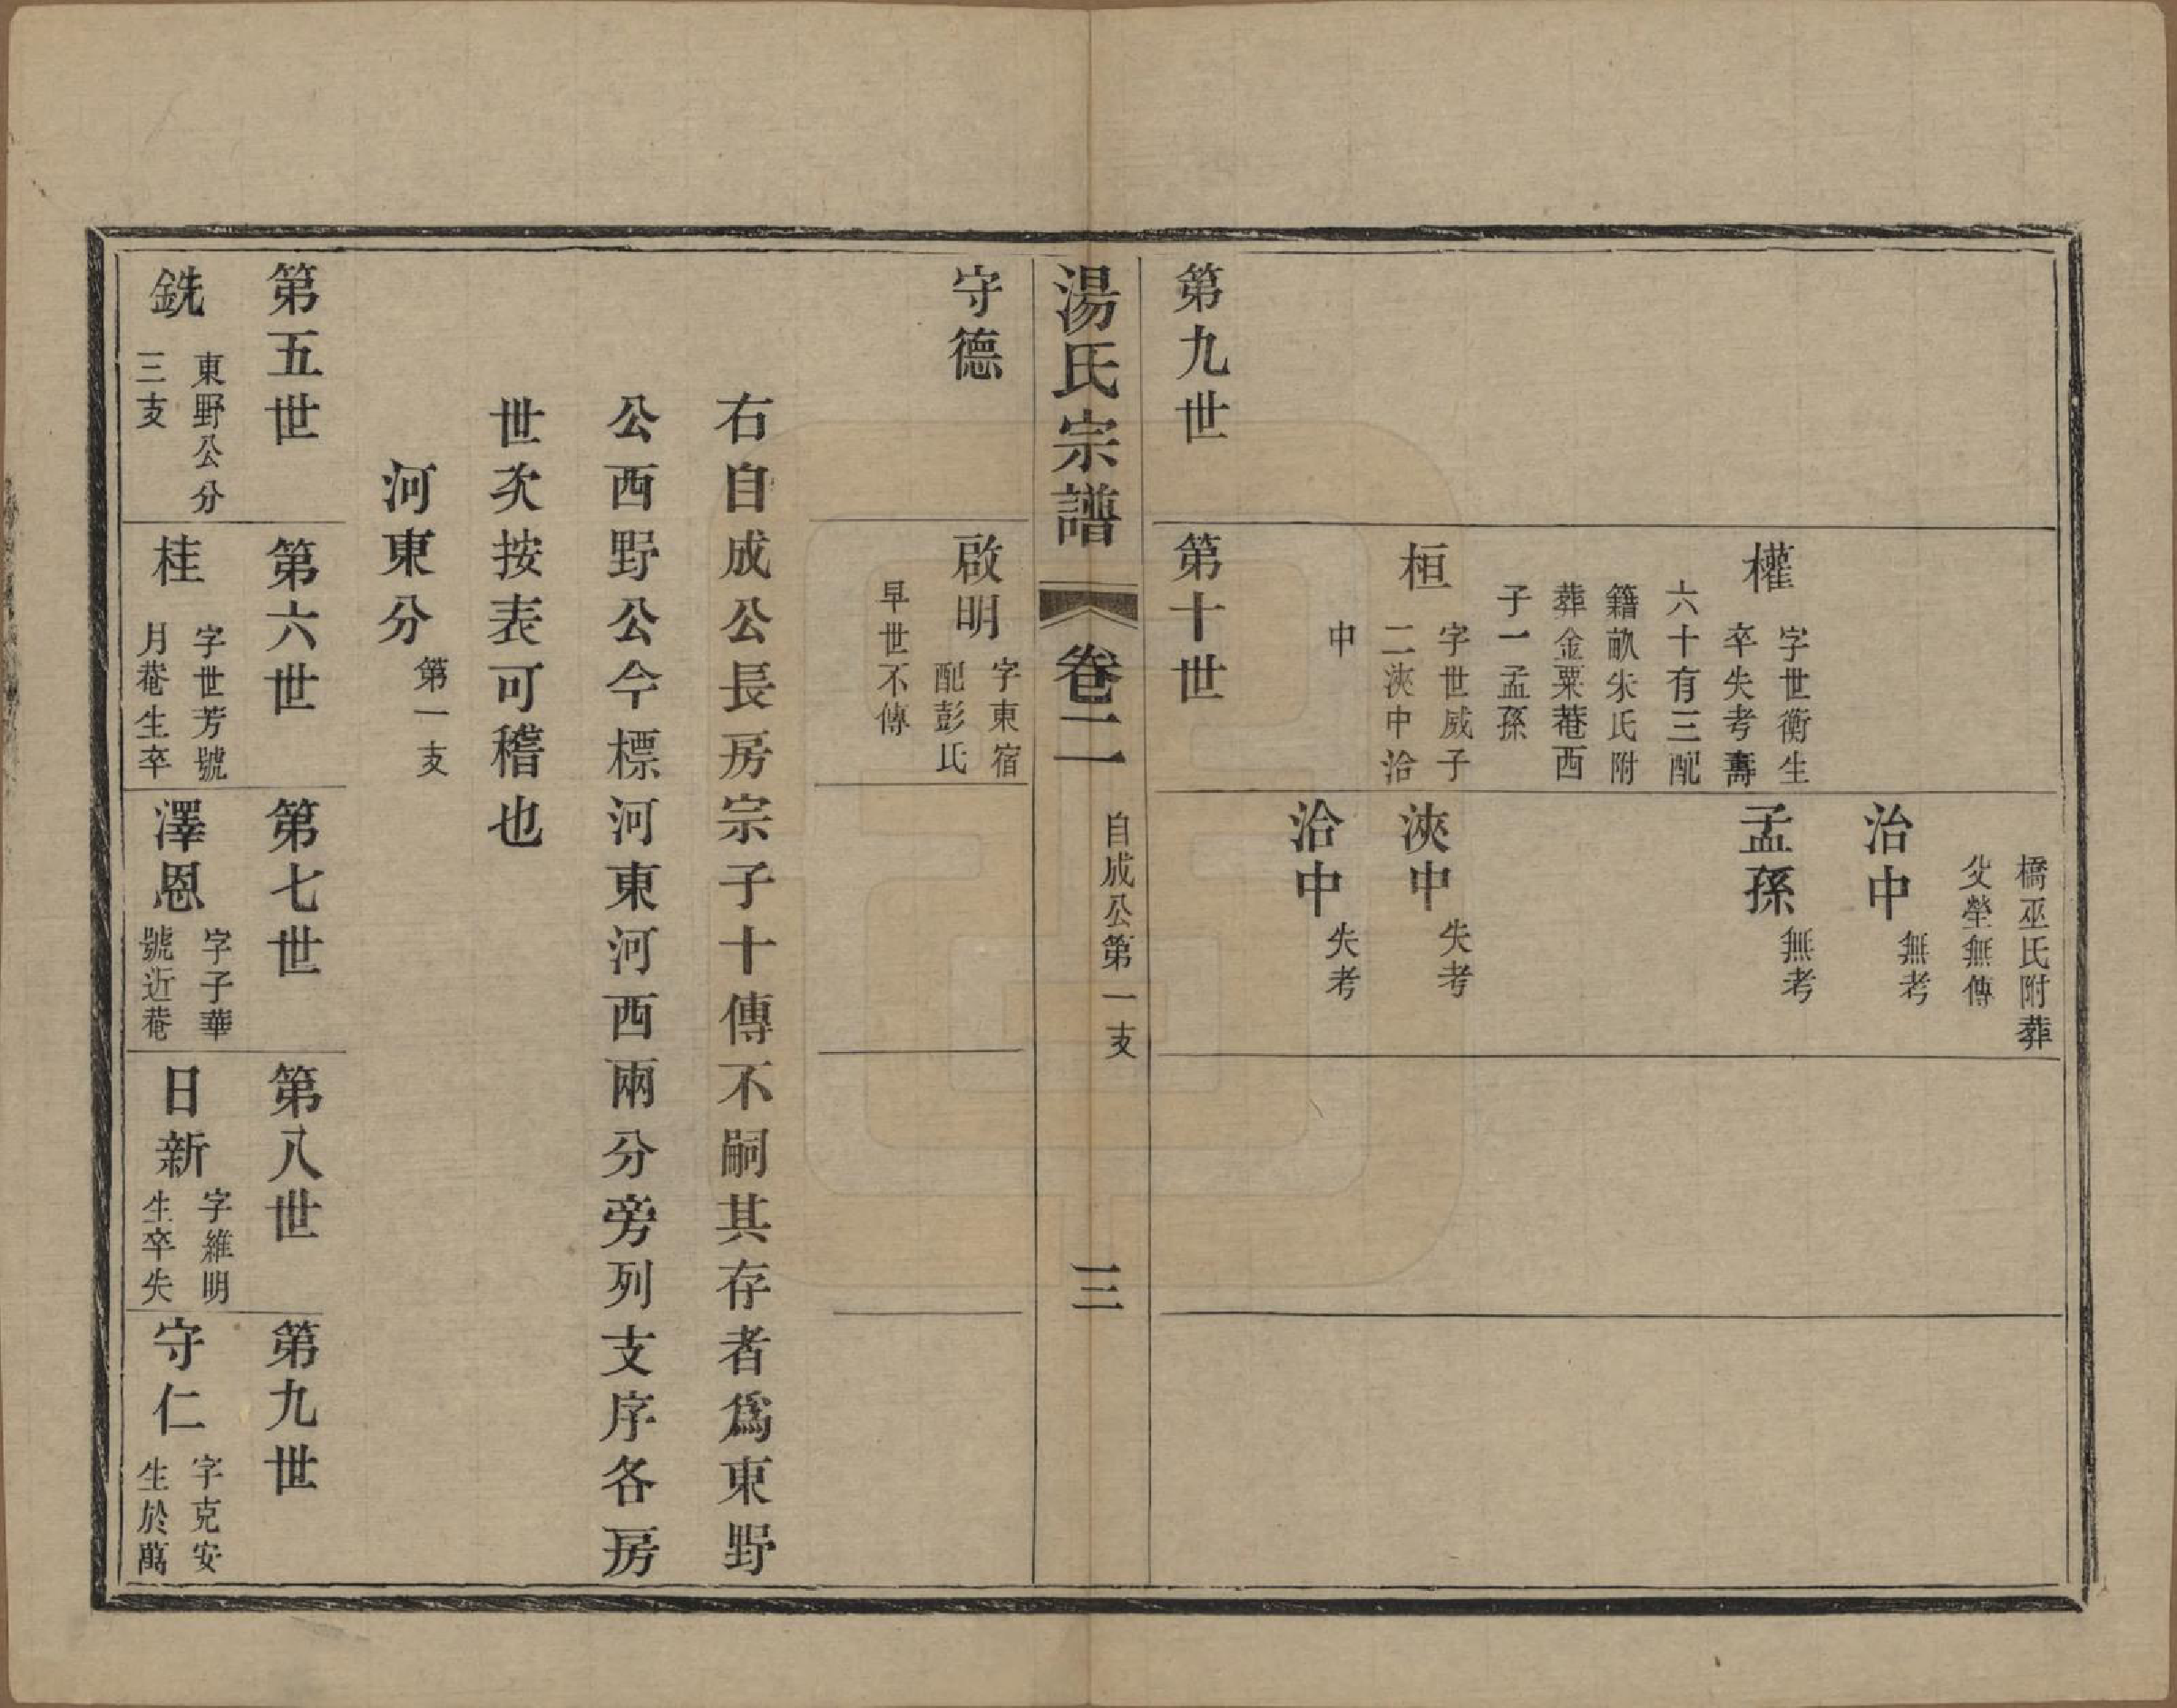 橋巫氏附葬
父塋無傳
治中 無考
權 字世衡生
卒失考壽
六十有三配
籍畝朱氏附
葬金粟菴西
子一孟孫
孟孫 無考
桓 字世威子
二浹中洽
中
浹中 失考
洽中 失考
第九世
第十世
湯氏宗譜
卷二
自成公第一支
三
守德
啟明 字東宿
配彭氏
早世不傳
右自成公長房宗子十傳不嗣其存者爲東野
公西野公今標河東河西兩分旁列支序各房
世次按表可稽也
河東分 第一支
第五世
第六世
第七世
第八世
第九世
銑 東野公分
三支
桂 字世芳號
月菴生卒
澤恩 字子華
號近菴
日新 字維明
生卒失
守仁 字克安
生於萬